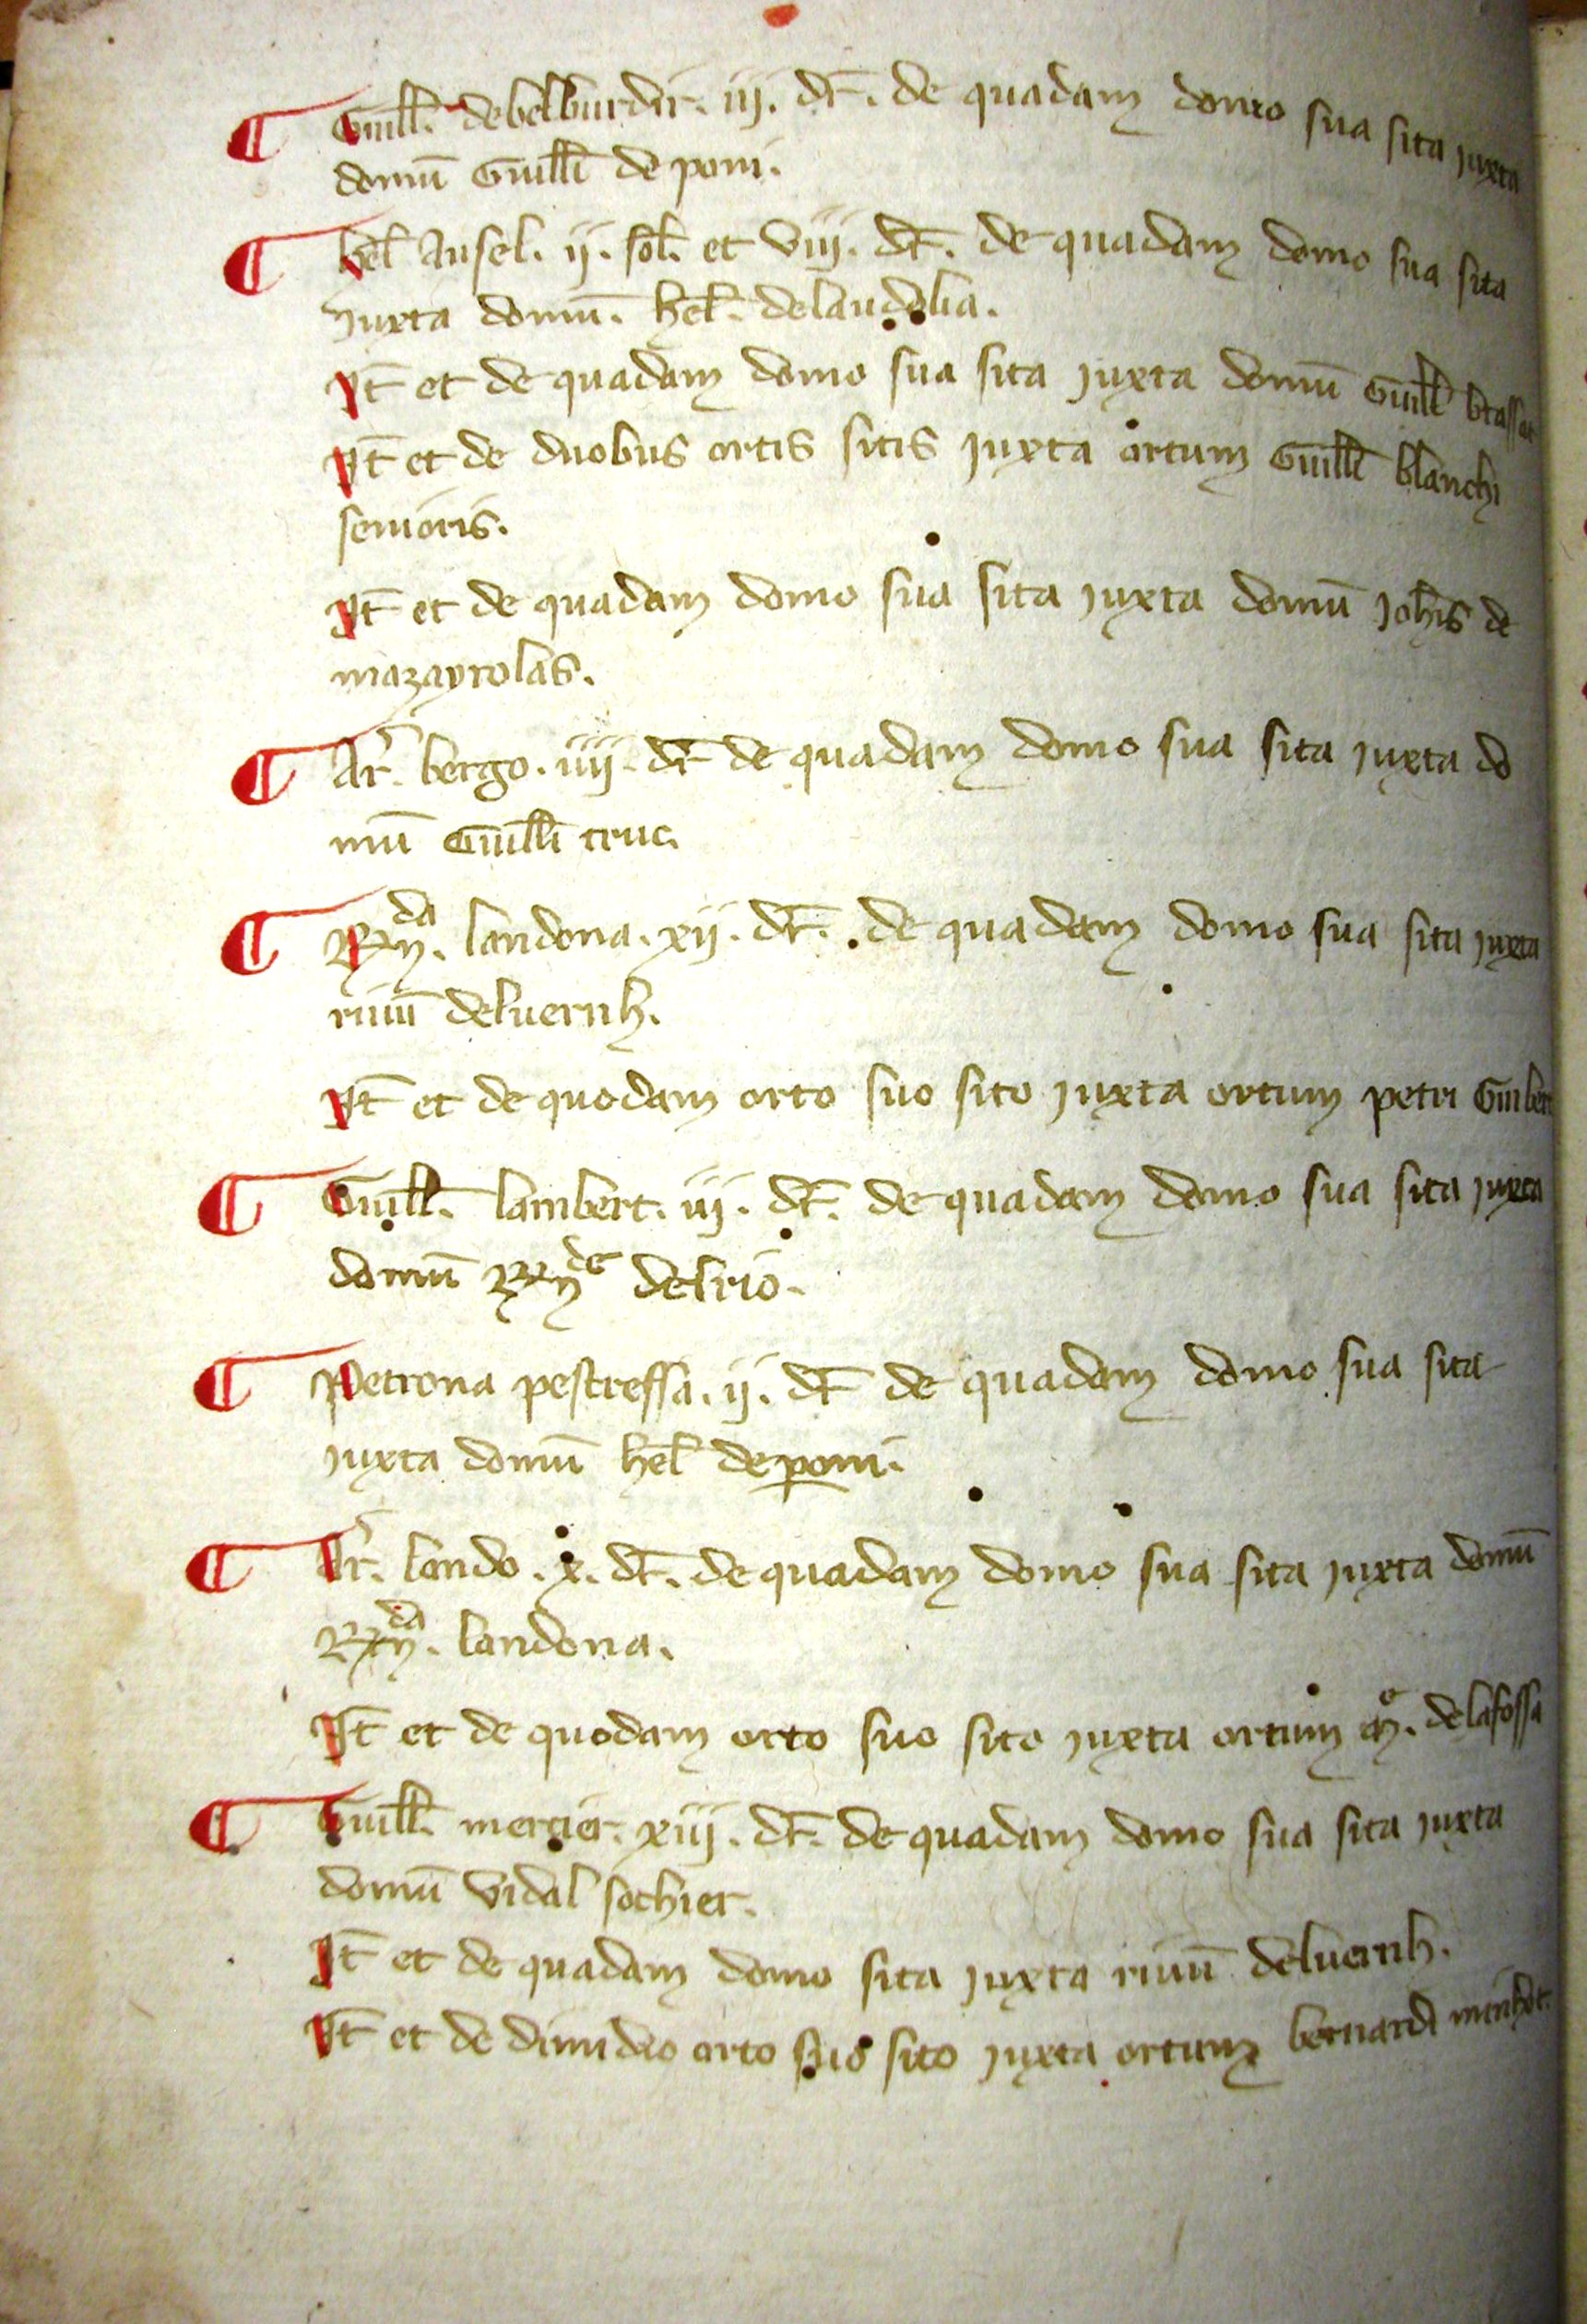 ¶ Guill̄. debelburdir. iij. dr̄. de quadam domo sua sita iuxta
domū Guill̄i de pom.
¶ hel̄ Ansel. ij. sol̄. et viij. dr̄. de quadam domo sua sita
iuxta domū. hel̄. delaudolia.
It̄ et de quadam domo sua sita iuxta domū Guill̄i
It̄ et de duobus ortis sitis iuxta ortum Guill̄i blanchi
senioris.
It̄ et de quadam domo sua sita iuxta domū Joh̄is de
mazayrolas.
¶ Ar̄. bergo. iiij. dr̄ de quadam domo sua sita iuxta do
mū Guill̄i truc.
¶ Rẏᵈᵃ. landona. xij. dr̄. de quadam domo sua sita iuxta
riuū deluernh.
It̄ et de quodam orto suo sito iuxta ortum petri
¶ Guill̄. lambert. iij. dr̄. de quadam domo sua sita iuxta
domū Ryᵈᵉ delrio.
¶ Petrona pestressa. ij. dr̄ de quadam domo sua sita
iuxta domū hel̄ depom.
¶ Ar̄. lando. x. dr̄. de quadam domo sua sita iuxta domū
Ryᵈᵃ. landona.
It̄ et de quodam orto suo sito iuxta ortum mᵉ. delafossa
¶ Guill̄. mercier. xiij. dr̄. de quadam domo sua sita iuxta
domū vidal sochier.
It̄ et de quadam domo sita iuxta riuū deluernh.
It̄ et de dimidio orto suo sito iuxta ortum bernardi